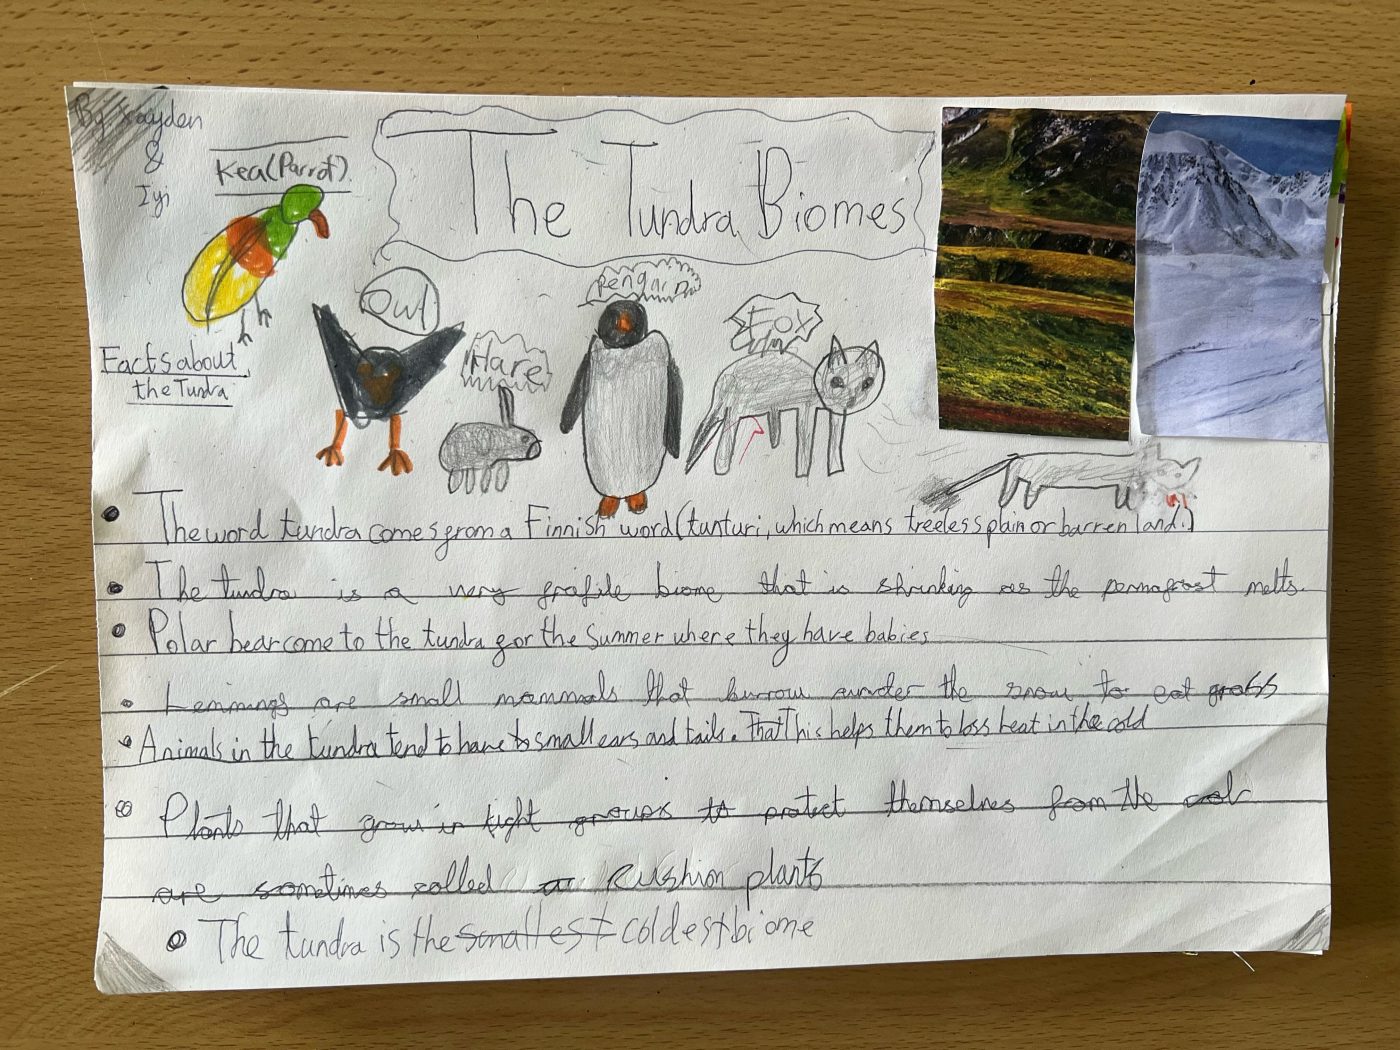 By Xayden
&
Iyi
Kea(Parrot).
The Tundra Biomes
Owl
Hare
Penguin
Fox
Facts about
the Tundra
The word tundra comes from a Finnish word (tunturi, which means treeless plain or barren land.)
The tundra is a very grafile biome that is shrinking as the permafrost melts.
Polar bear come to the tundra for the summer where they have babies
Lemmings are small mammals that burrow under the snow to eat grass
Animals in the tundra tend to have to small ears and tails. That This helps them to loss heat in the cold
Plants that grow in tight groups to protect themselves from the cold
are sometimes called a Cushion plants
The tundra is the smallest coldest biome